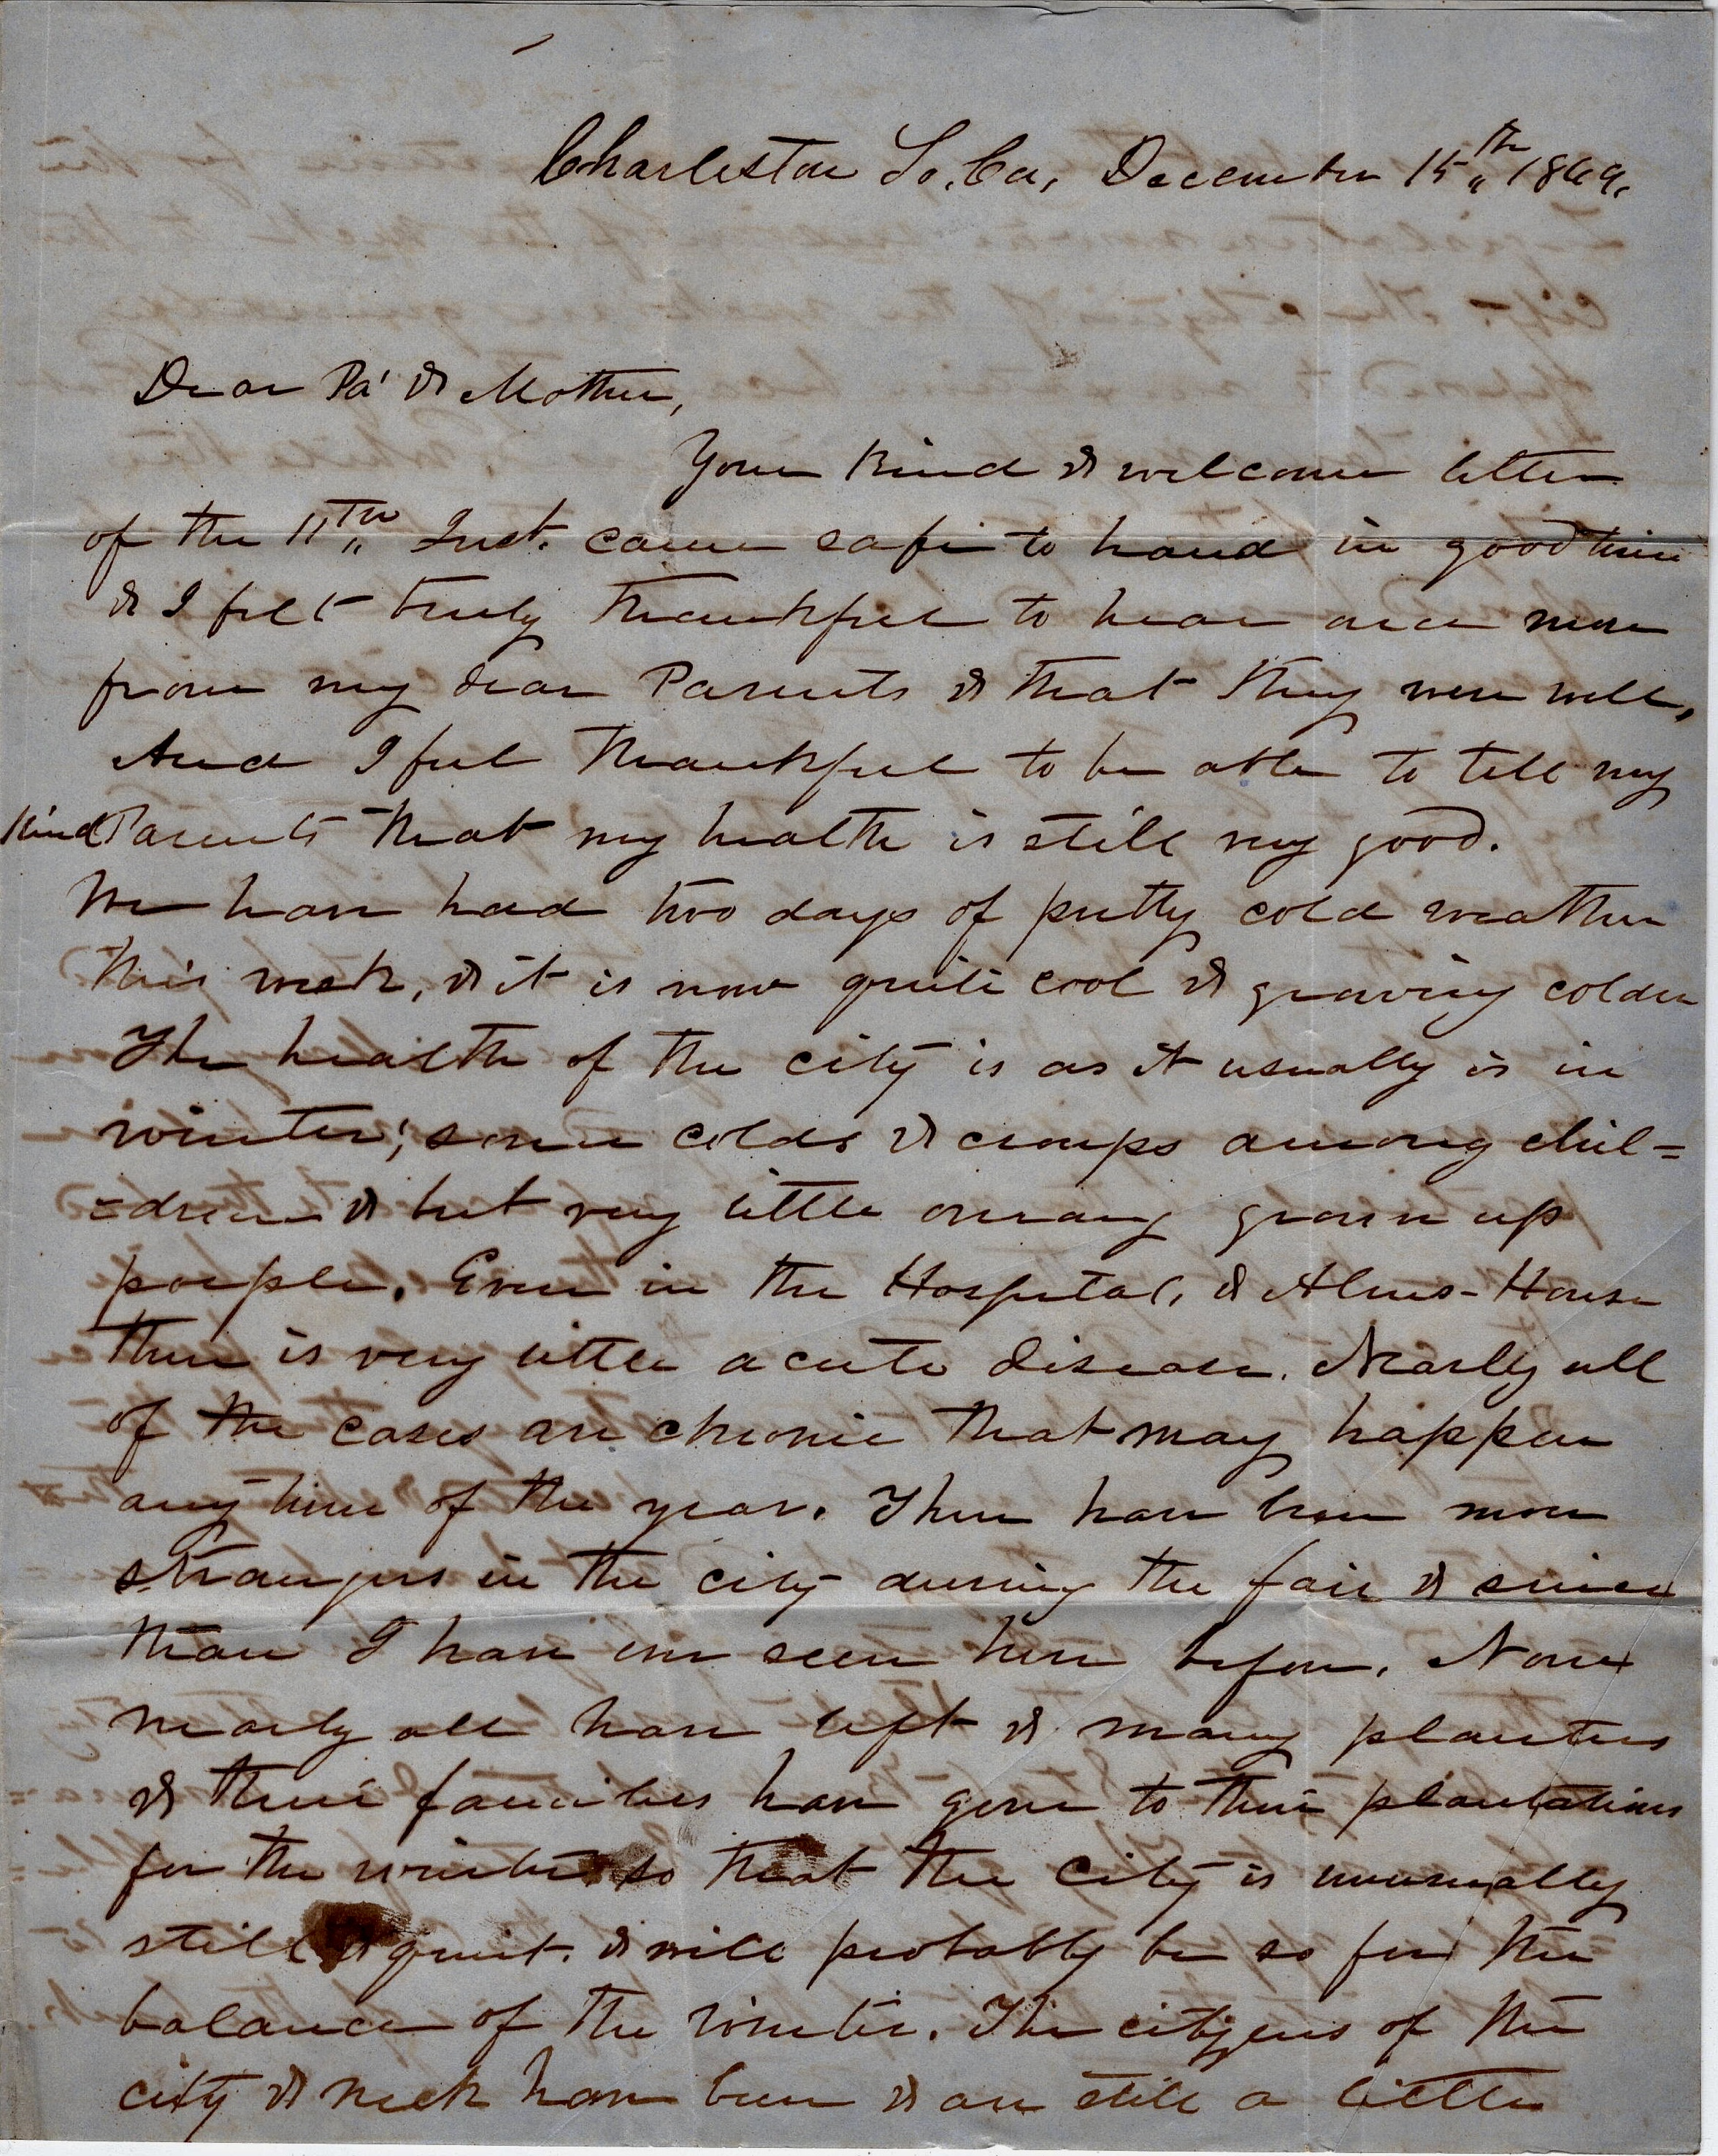 Charleston So. Ca, December 15th 1849.
Dear Pa' & Mother,
Your kind & welcome letter
of the 11th Inst. came safe to hand in good time
& I felt truly thankful to hear once more
from my dear Parents & that they were well,
And I feel thankful to be able to tell my
kind Parents that my health is still very good.
We have had two days of pretty cold weather
this week, & it is now quite cool & growing colder
The health of the city is as it usually is in
winter; some colds & croups among chil=
=dren & but very little among grown up
people. Even in the Hospital, & Alms-House
there is very little acute disease. Nearly all
of the cases are chronic that may happen
any time of the year. There have been more
strangers in the city during the fair & since
than I have ever seen here before. Now
nearly all have left & many planters
& their families have gone to their plantations
for the winter so that the city is unusually
still & quiet. & will probably be so for the
balance of the winter. The citizens of the
city & neck have been & are still a little